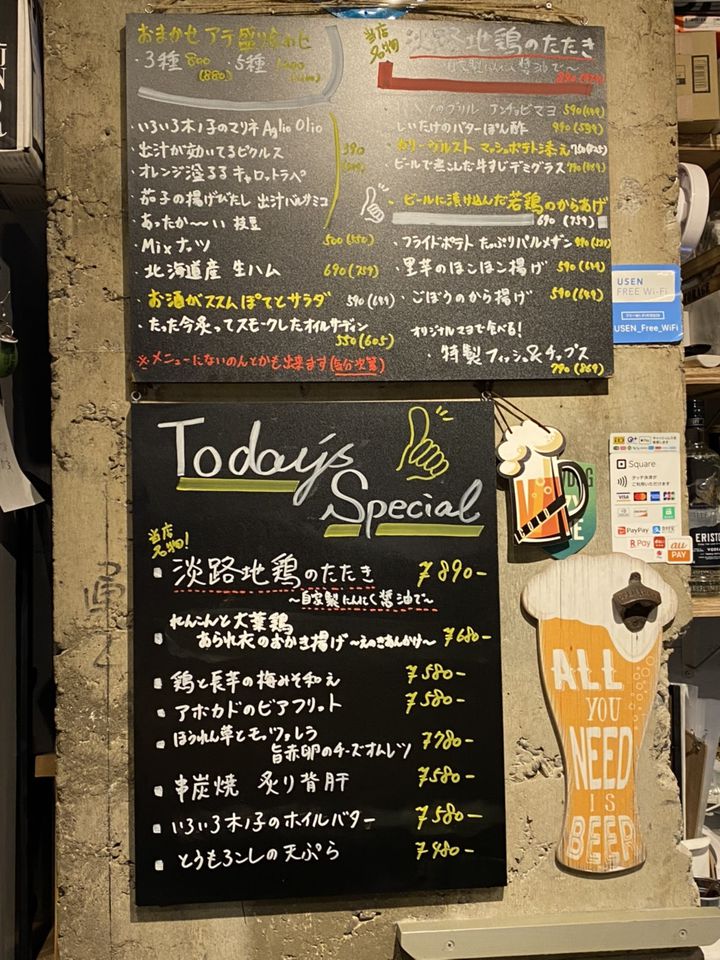 おまかせ アテ 盛り合わせ
・3種 800 (880) 5種
・いろいろ木ノ子のマリネ Aglio Olio
・出汁が効いてるピクルス
390
・オレンジ溢るる キャロットラペ
・茄子の揚げびたし 出汁バルサミコ
・あったか〜い 枝豆
・Mix ナッツ 500 (550)
・北海道産 生ハム 690 (759)
・お酒がススんぽてとサラダ 590 (649)
・たった今炙ってスモークしたオイルサーデン
550 (605)
※メニューにないのんとかも出来ます(気分次第)
当店名物
淡路地鶏のたたき
〜自家製にんにく醤油で〜
グリル アンチョビマヨ 590 (649)
しいたけのバターぽん酢 490 (539)
・カリーヴルスト マッシュポテト添え
・ビールで煮こんだ牛すじデミグラス 790
・ビールに漬け込んだ若鶏のからあげ
690 (759)
・フライドポテト たっぷりパルメザン
・里芋のほこほこ揚げ 590 (649)
・ごぼうのから揚げ 590 (649)
オリジナルマヨで食べる!
・特製フィッシュ&チップス
790 (869)
Today's
Special
当店名物!
淡路地鶏のたたき ¥890-
〜自家製にんにく醤油で〜
れんこんと大葉鶏
あられ衣のおかき揚げ〜えのきあんかけ〜 ¥680-
鶏と長芋の梅みそ和え ¥580-
アボカドのビアフリット ¥580-
ほうれん草とモッツァレラ
旨赤卵のチーズオムレツ ¥780-
串炭焼 炙り背肝 ¥580-
いろいろ木ノ子のホイルバター ¥580-
とうもろこしの天ぷら ¥480-
USEN
FREE Wi-Fi
USEN_Free_WiFi
Square
タッチ決済が
ご利用いただけます
VISA
JCB
PayPay
R Pay
au
PAY
ERISTO
ALL
YOU
NEED
IS
BEER